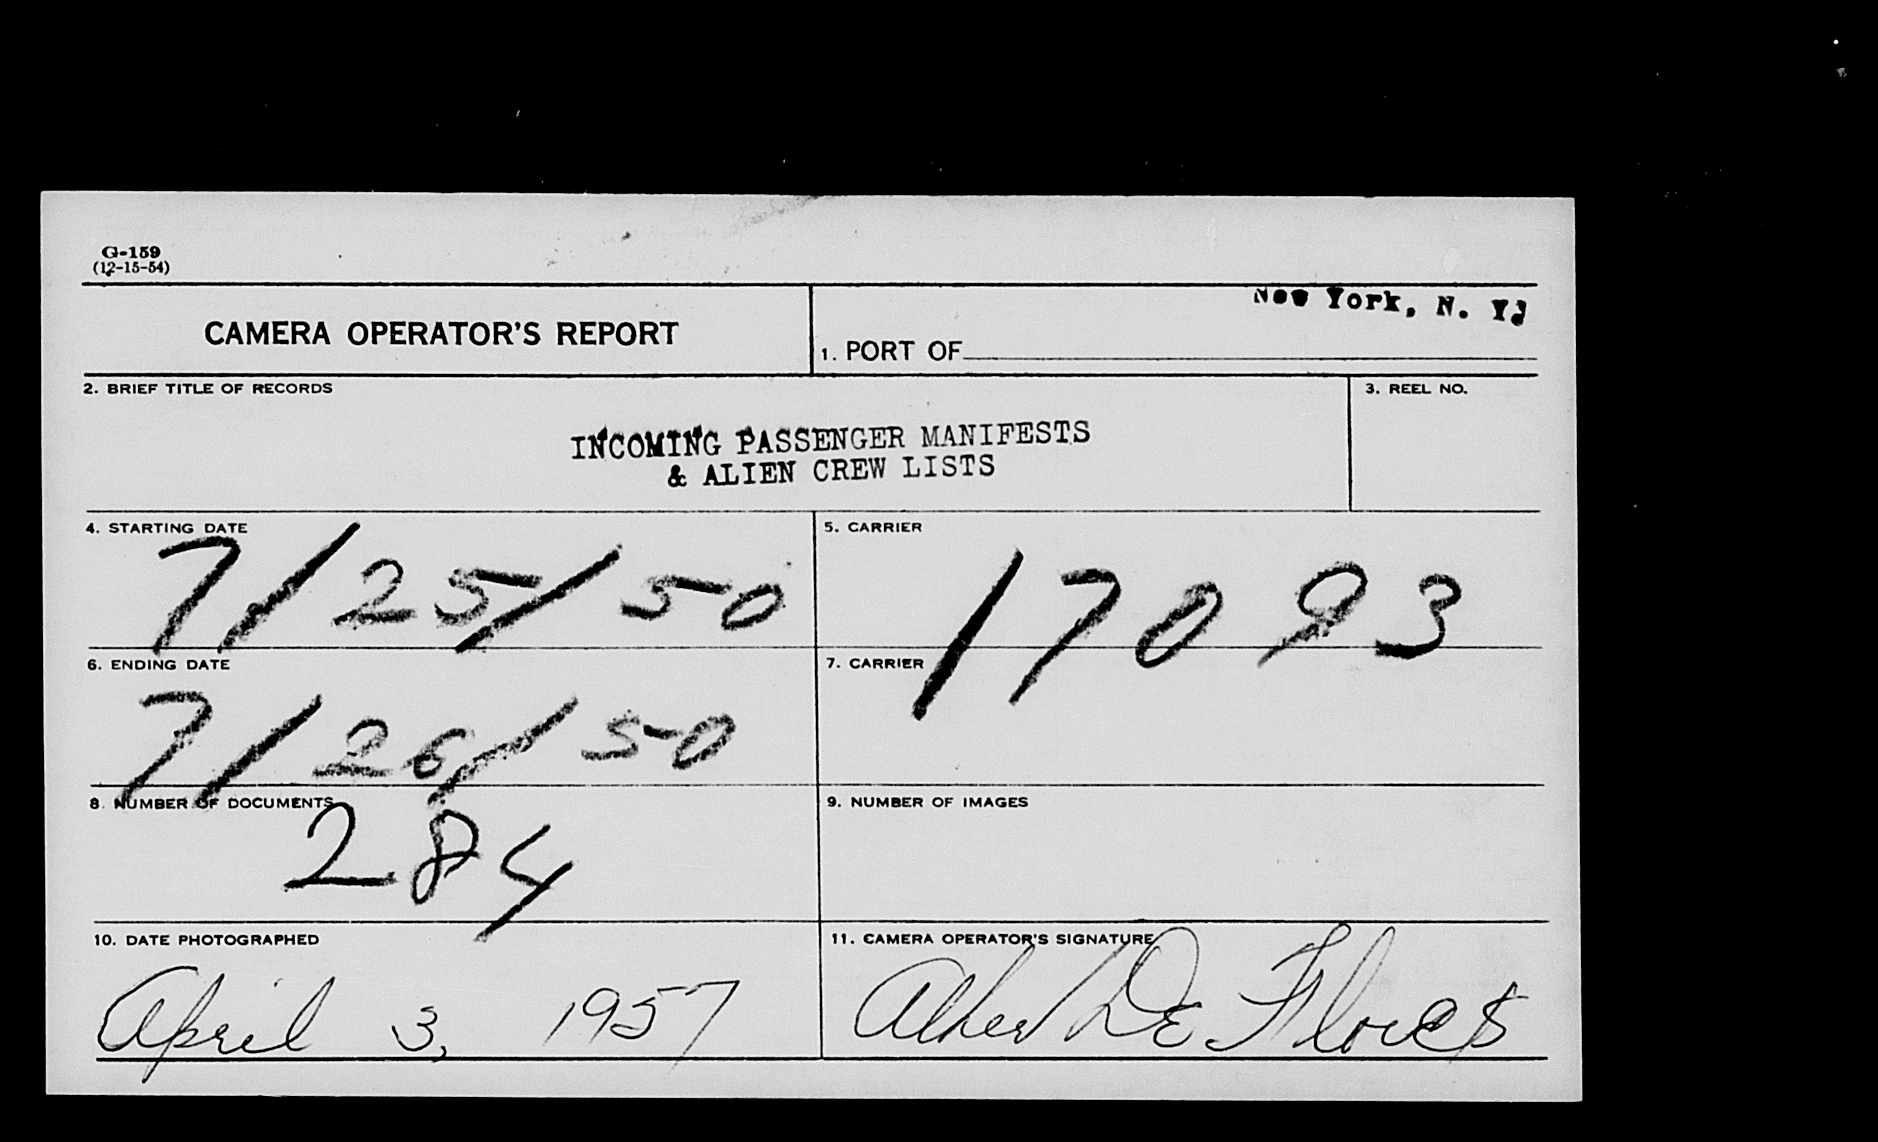 G-159
(12-15-54)
CAMERA OPERATOR'S REPORT
1. PORT OF New York, N. Y.
2. BRIEF TITLE OF RECORDS
INCOMING PASSENGER MANIFESTS
& ALIEN CREW LISTS
3. REEL NO.
4. STARTING DATE
7/25/50
5. CARRIER
17093
6. ENDING DATE
7/26/50
7. CARRIER
8. NUMBER OF DOCUMENTS
284
9. NUMBER OF IMAGES
10. DATE PHOTOGRAPHED
April 3, 1957
11. CAMERA OPERATOR'S SIGNATURE
De Flores